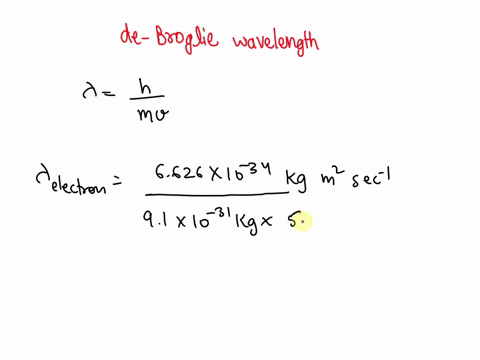 de-Broglie wavelength
λ = h / mv
λ electron = 6.626 × 10⁻³⁴ kg m² sec⁻¹ / 9.1 × 10⁻³¹ kg × 5.